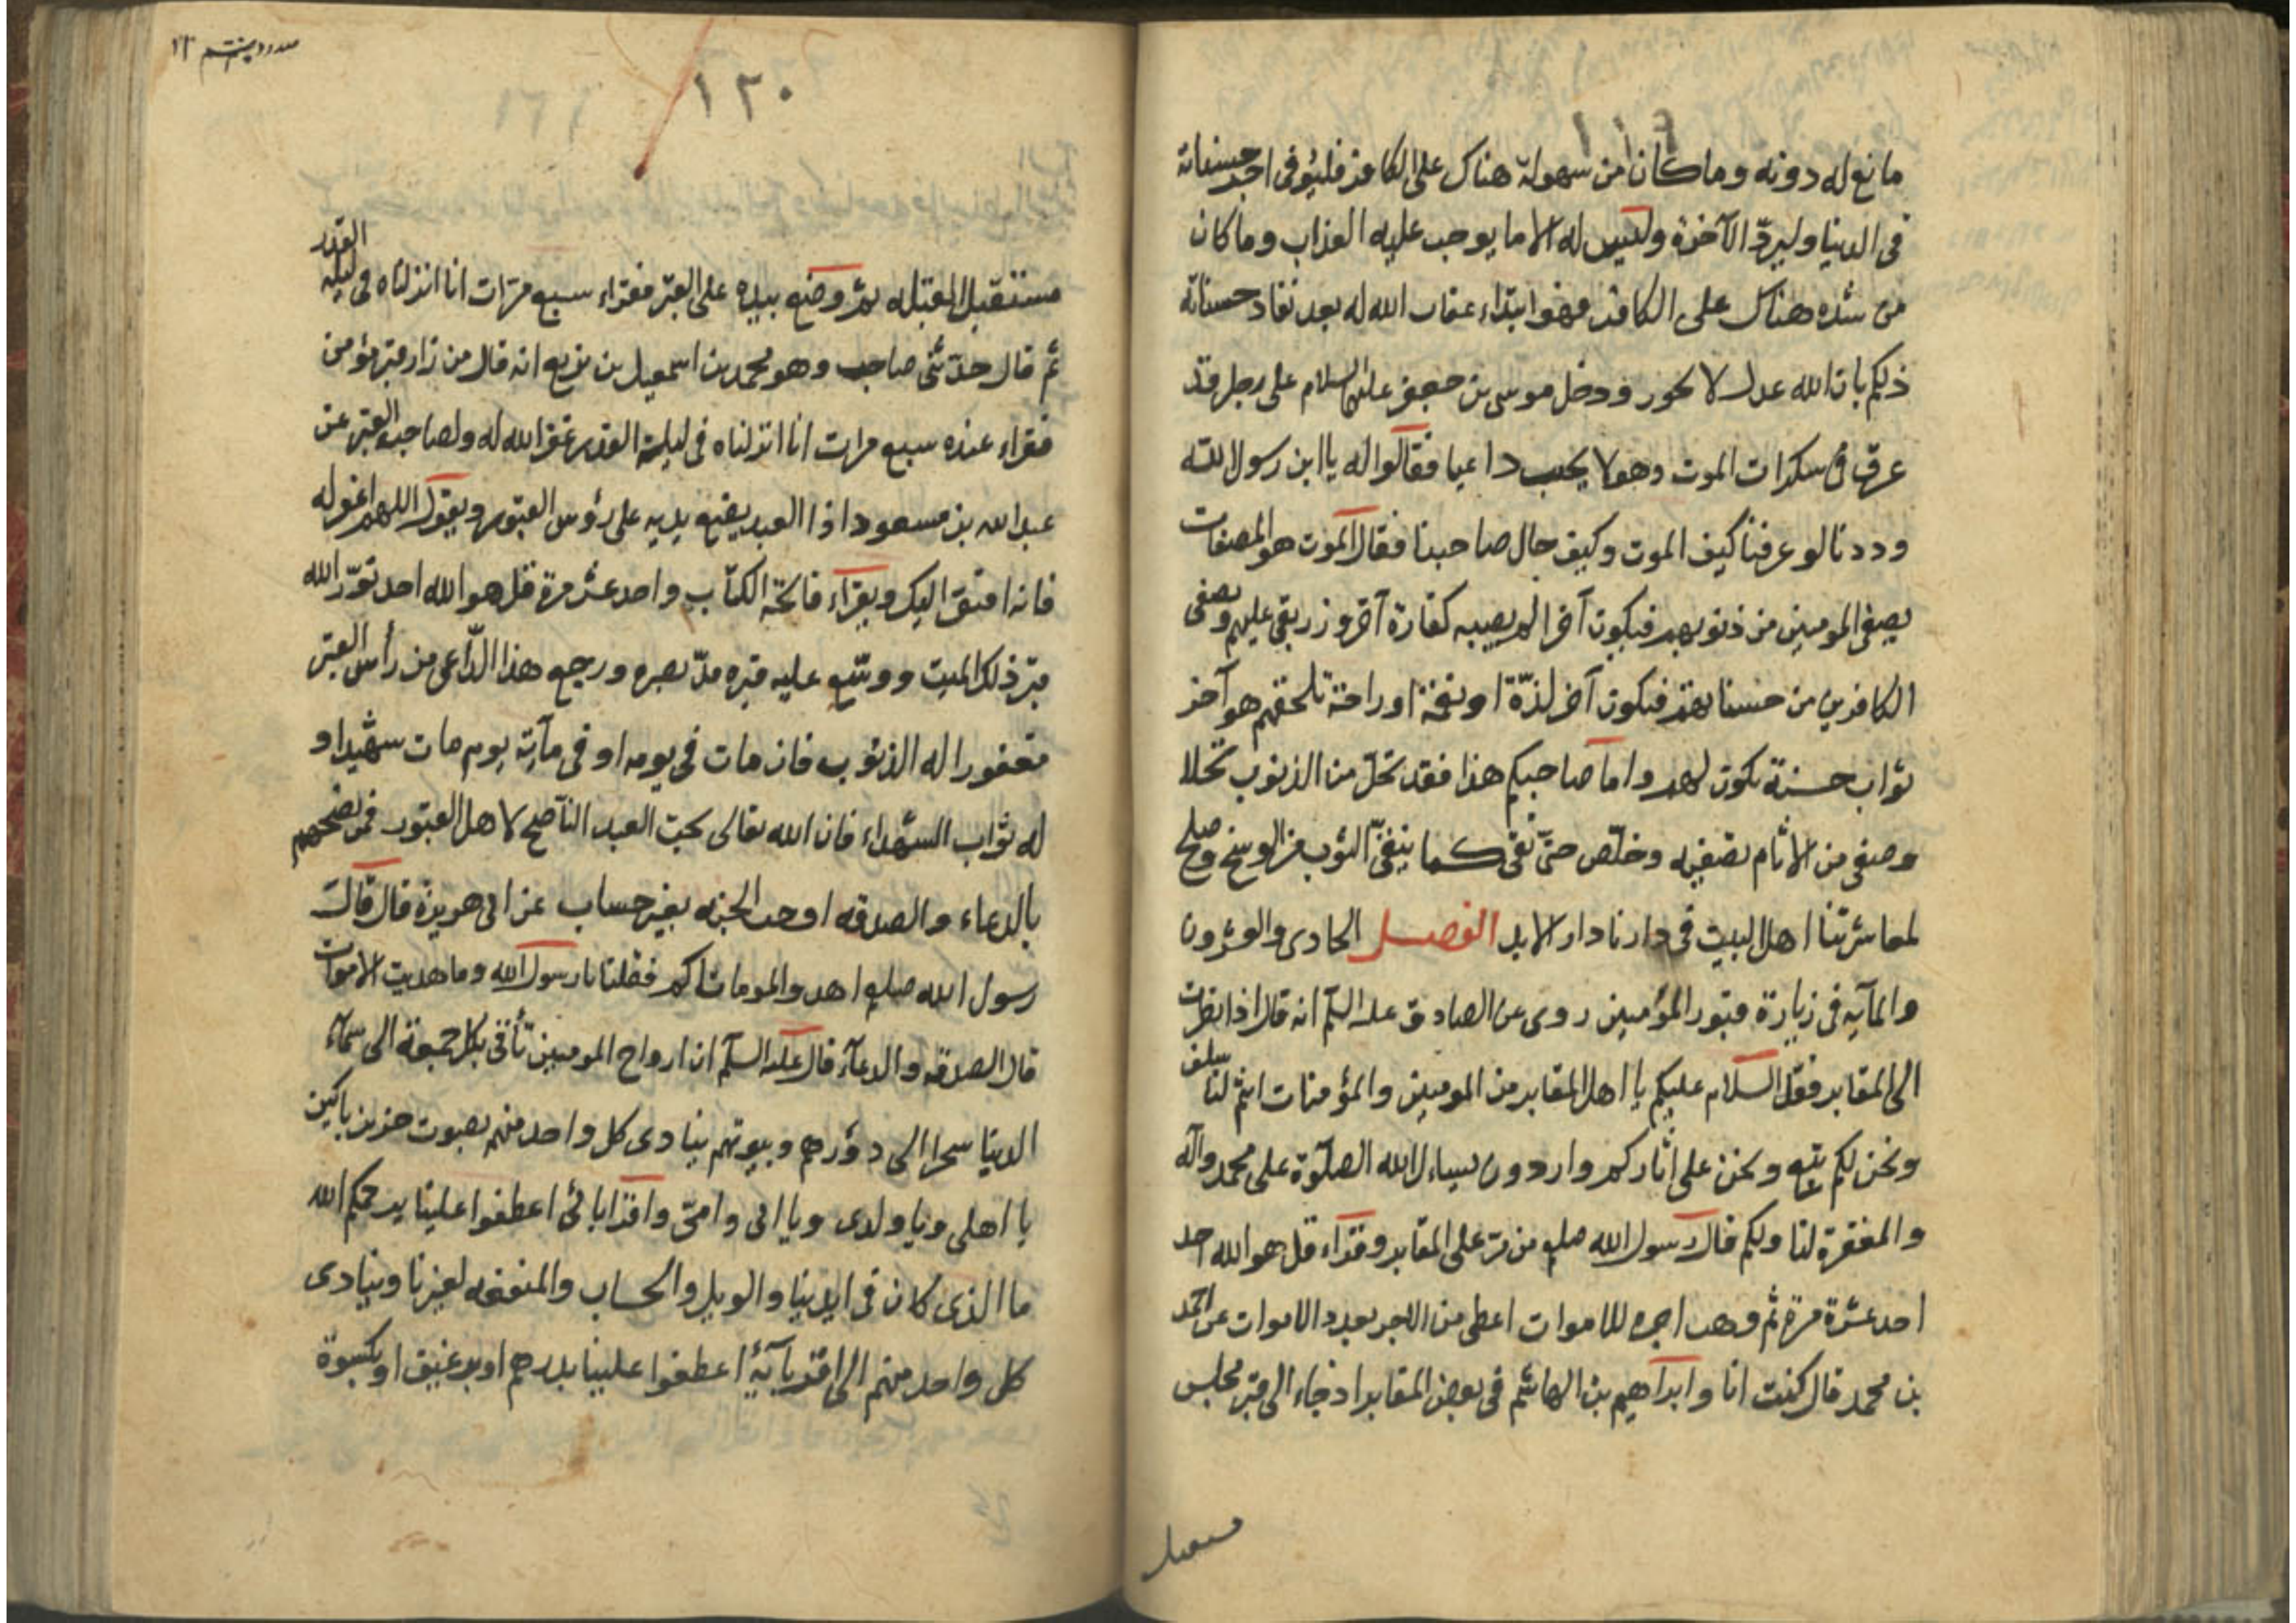 ١١٩
مانع له دونه وما كان من سهولة هناك على الكافر فليؤفى اجر حسناته
فى الدنيا وليردّ الآخرة وليس له الا ما يوجب عليه العذاب وما كان
من شده هناك على الكافر فهو ابتداء عقاب الله له بعد نفاد حسناته
ذلكم بان الله عدل لا يجور ودخل موسى بن جعفر عليه السلام على رجل قد
عرق فى سكرات الموت وهو لا يجيب داعيا فقالوا له يا ابن رسول الله
وددنا لو عرفنا كيف الموت وكيف حال صاحبنا فقال الموت هو المصفات
يصفى المومنين من ذنوبهم فيكون آخر الم يصيبه كفارة آخر وزر بقى عليهم ويصفى
الكافرين من حسناتهم فيكون آخر لذّة او نعمة او راحة تلحقهم هو آخر
ثواب حسنة تكون لهم واما صاحبكم هذا فقد نخل من الذنوب نخلا
وصفى من الاثام تصفيه وخلّص حتّى نقى كما ينقى الثوب من الوسخ وصلح
لمعاشرتنا اهل البيت فى دارنا دار الابد الفصل الحادى والعشرون
والمآيه فى زيارة قبور المؤمنين روى عن الصادق عليه السلم انه قال اذا نظرت
الى المقابر فقل السلام عليكم يا اهل المقابر من المومنين والمؤمنات انتم لنا سلف
ونحن لكم تبع ونحن على اثاركم واردون نساءل الله الصلوة على محمد وآله
والمغفرة لنا ولكم قال رسول الله صلعم من مرّ على المقابر وقراء قل هو الله احد
احد عشرة مرة ثم وهب اجره للاموات اعطى من الاجر بعدد الاموات عن احمد
بن محمد قال كنت انا وابراهيم بن الهاشم فى بعض المقابر اذ جاء الى قبر فجلس
١٢٠
مستقبل القبله ثم وضع بيده على القبر فقراء سبع مرّات انا انزلناه فى ليلة القدر
ثم قال حدّثنى صاحب وهو محمد بن اسمعيل بن بزيع انه قال من زار قبر مؤمن
فقراء عنده سبع مرات انا انزلناه فى ليلة القدر غفر الله له ولصاحب القبر عن
عبد الله بن مسعود اذا العبد يضع يديه على رؤس القبور ويقول اللهم اغفر له
فانه افتقر اليك ويقراء فاتحة الكتاب واحد عشر مرة قل هو الله احد نوّر الله
قبر ذلك الميت ووسّع عليه قبره مدّ بصره ورجع هذا الدّاعى من رأس القبر
مغفورا له الذنوب فان مات فى يومه او فى مآية يوم مات شهيدا و
له ثواب الشهداء فان الله تعالى يحبّ العبد النّاصح لاهل القبور فمن نصحهم
بالدعاء والصدقه اوجب الجنه بغير حساب عن ابى هريرة قال قال
رسول الله صلعم اهدوا لموماتاكم فقلنا يا رسول الله وما هديت الاموات
قال الصدقه والدعآء قال عليه السلم ان ارواح المومنين تأتى بكل جمعة الى سمآء
الدنيا سحرا الى دؤرهم وبيوتهم ينادى كل واحد منهم بصوت حزين باكين
يا اهلى ويا ولدى ويا ابى وامّى واقرابائى اعطفوا علينا يرحمكم الله
ما الذى كان فى ايدينا والويل والحساب والمنفعه لغيرنا وينادى
كل واحد منهم الى اقربآيه اعطفوا علينا بدرهم او برغيف او بكسوة